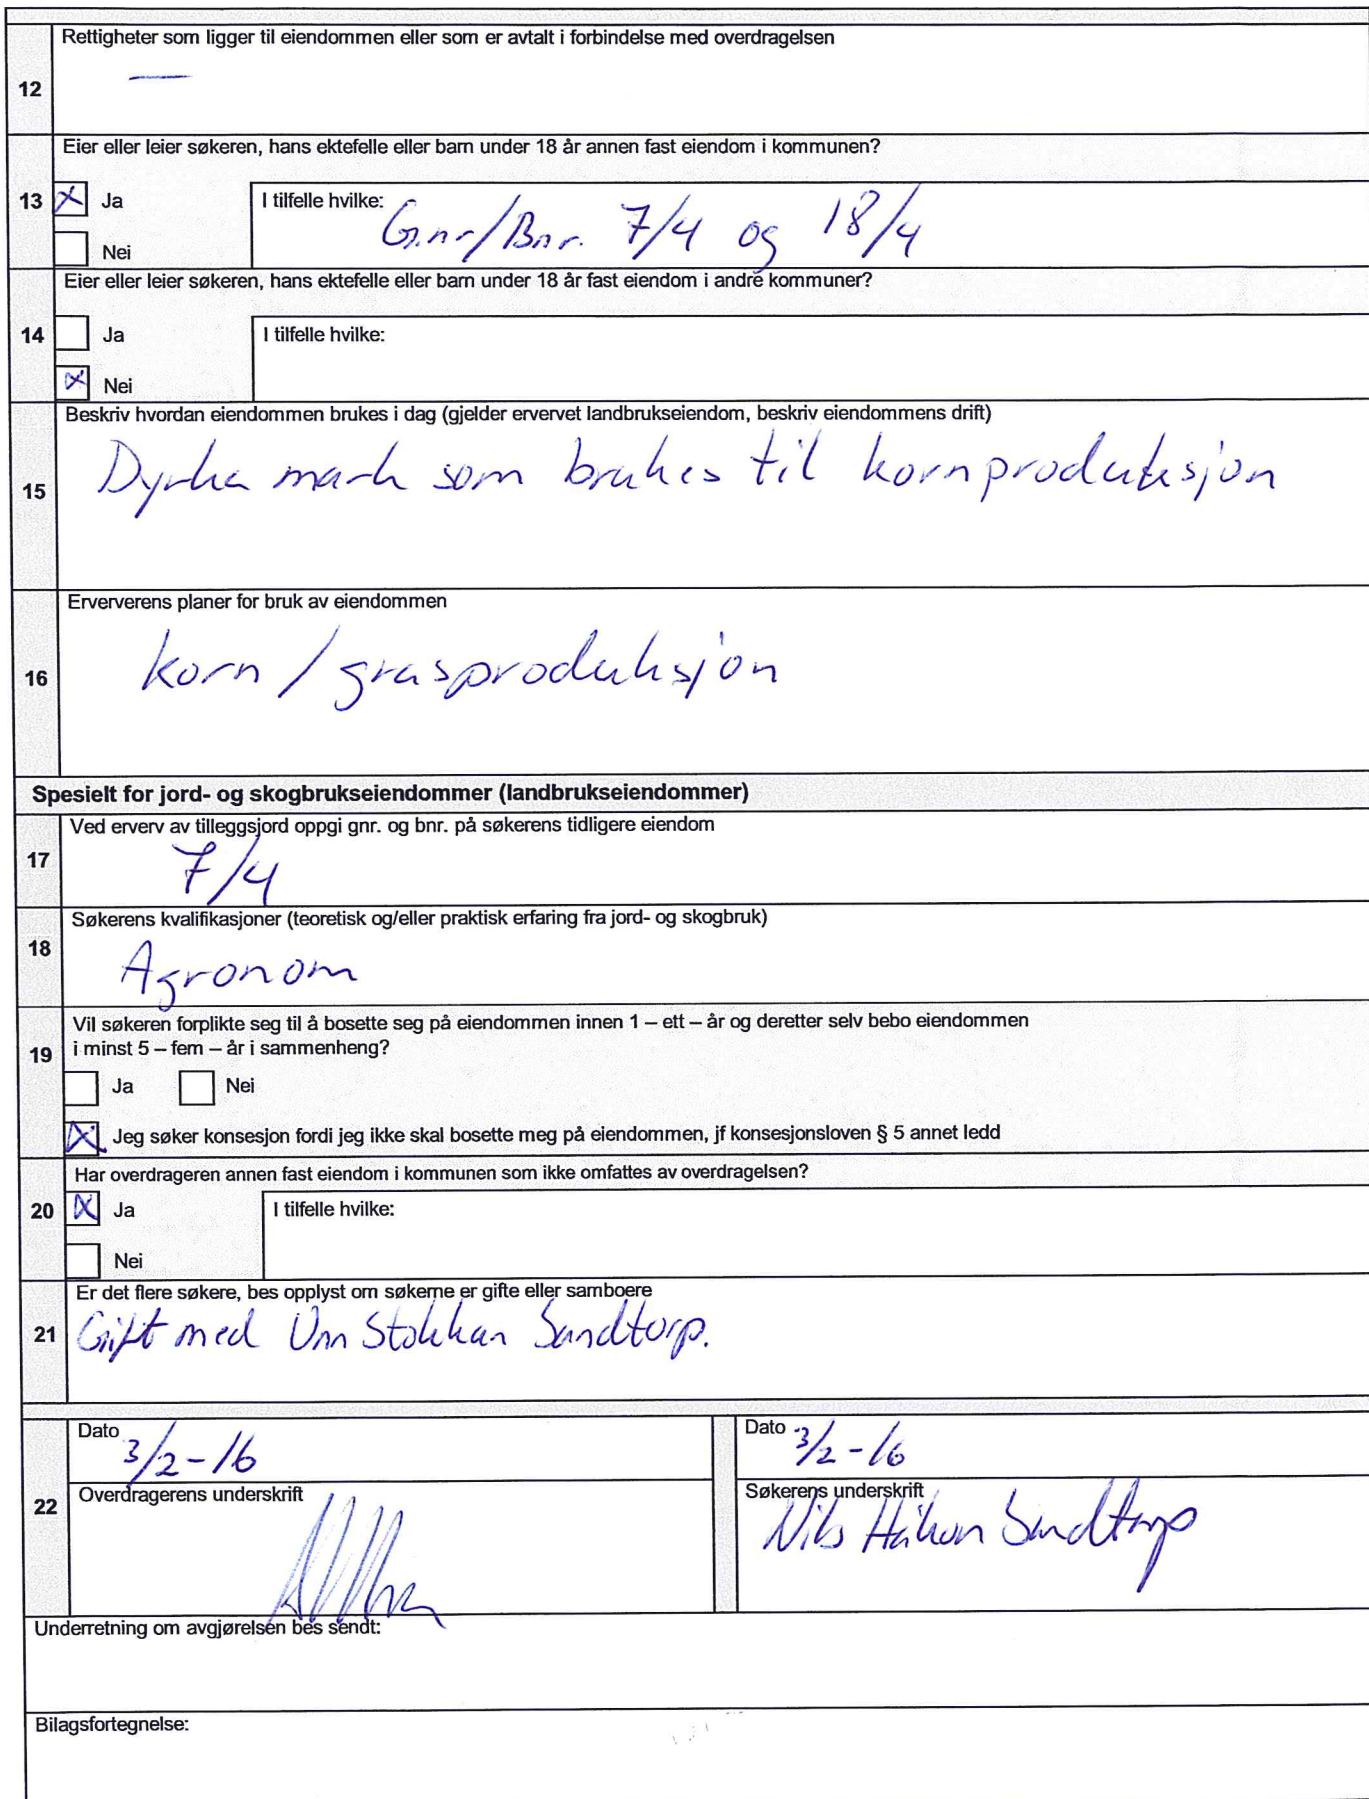 Rettigheter som ligger til eiendommen eller som er avtalt i forbindelse med overdragelsen
12
—
Eier eller leier søkeren, hans ektefelle eller barn under 18 år annen fast eiendom i kommunen?
13 Ja
I tilfelle hvilke: G.nr/Bnr. 7/4 og 18/4
Nei
Eier eller leier søkeren, hans ektefelle eller barn under 18 år fast eiendom i andre kommuner?
14 Ja
I tilfelle hvilke:
Nei
Beskriv hvordan eiendommen brukes i dag (gjelder ervervet landbrukseiendom, beskriv eiendommens drift)
15 Dyrka mark som brukes til kornproduksjon
Erververens planer for bruk av eiendommen
16 korn / grasproduksjon
Spesielt for jord- og skogbrukseiendommer (landbrukseiendommer)
Ved erverv av tilleggsjord oppgi gnr. og bnr. på søkerens tidligere eiendom
17 7/4
Søkerens kvalifikasjoner (teoretisk og/eller praktisk erfaring fra jord- og skogbruk)
18 Agronom
Vil søkeren forplikte seg til å bosette seg på eiendommen innen 1 – ett – år og deretter selv bebo eiendommen
19 i minst 5 – fem – år i sammenheng?
Ja Nei
Jeg søker konsesjon fordi jeg ikke skal bosette meg på eiendommen, jf konsesjonsloven § 5 annet ledd
Har overdrageren annen fast eiendom i kommunen som ikke omfattes av overdragelsen?
20 Ja
I tilfelle hvilke:
Nei
Er det flere søkere, bes opplyst om søkerne er gifte eller samboere
21 Gift med Unn Stokkan Sandtorp.
22
Dato 3/2-16
Overdragerens underskrift
Dato 3/2-16
Søkerens underskrift
Nils Håkon Sandtorp
Underretning om avgjørelsen bes sendt:
Bilagsfortegnelse: